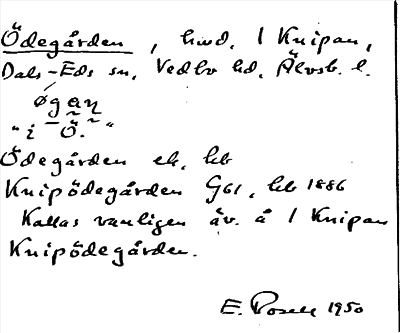 Ödegården, hmd, 1 Knipan,
Dals-Eds sn, Vedbo hd, Älvsb. l.
øgan
"i Ö."
Ödegården ek, hb
Knipödegården G61, hb 1886
Kallas vanligen äv. å 1 Knipan
Knipödegården.
E. 1950